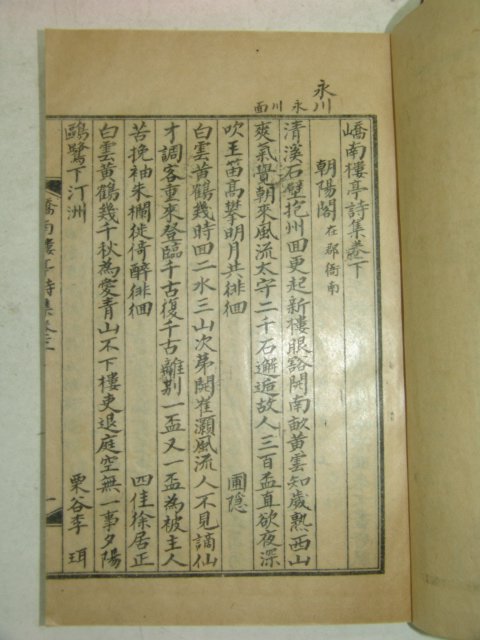 永川
永川面
嶠南樓亭詩集卷下
朝陽閣 在郡衙南
清溪石壁抱州回更起新樓眼豁開南畝黃雲知歲熟西山
爽氣覺朝來風流太守二千石邂逅故人三百盃直欲夜深
吹玉笛高攀明月共徘徊 圃隱
白雲黃鶴幾時回二水三山次第開崔灝風流人不見謫仙
才調客重來登臨千古復千古離別一盃又一盃為被主人
苦挽袖朱欄徒倚醉徘徊 四佳徐居正
白雲黃鶴幾千秋為愛青山不下樓吏退庭空無一事夕陽
鷗鷺下汀洲 栗谷李珥
嶠南樓亭詩集卷下
一